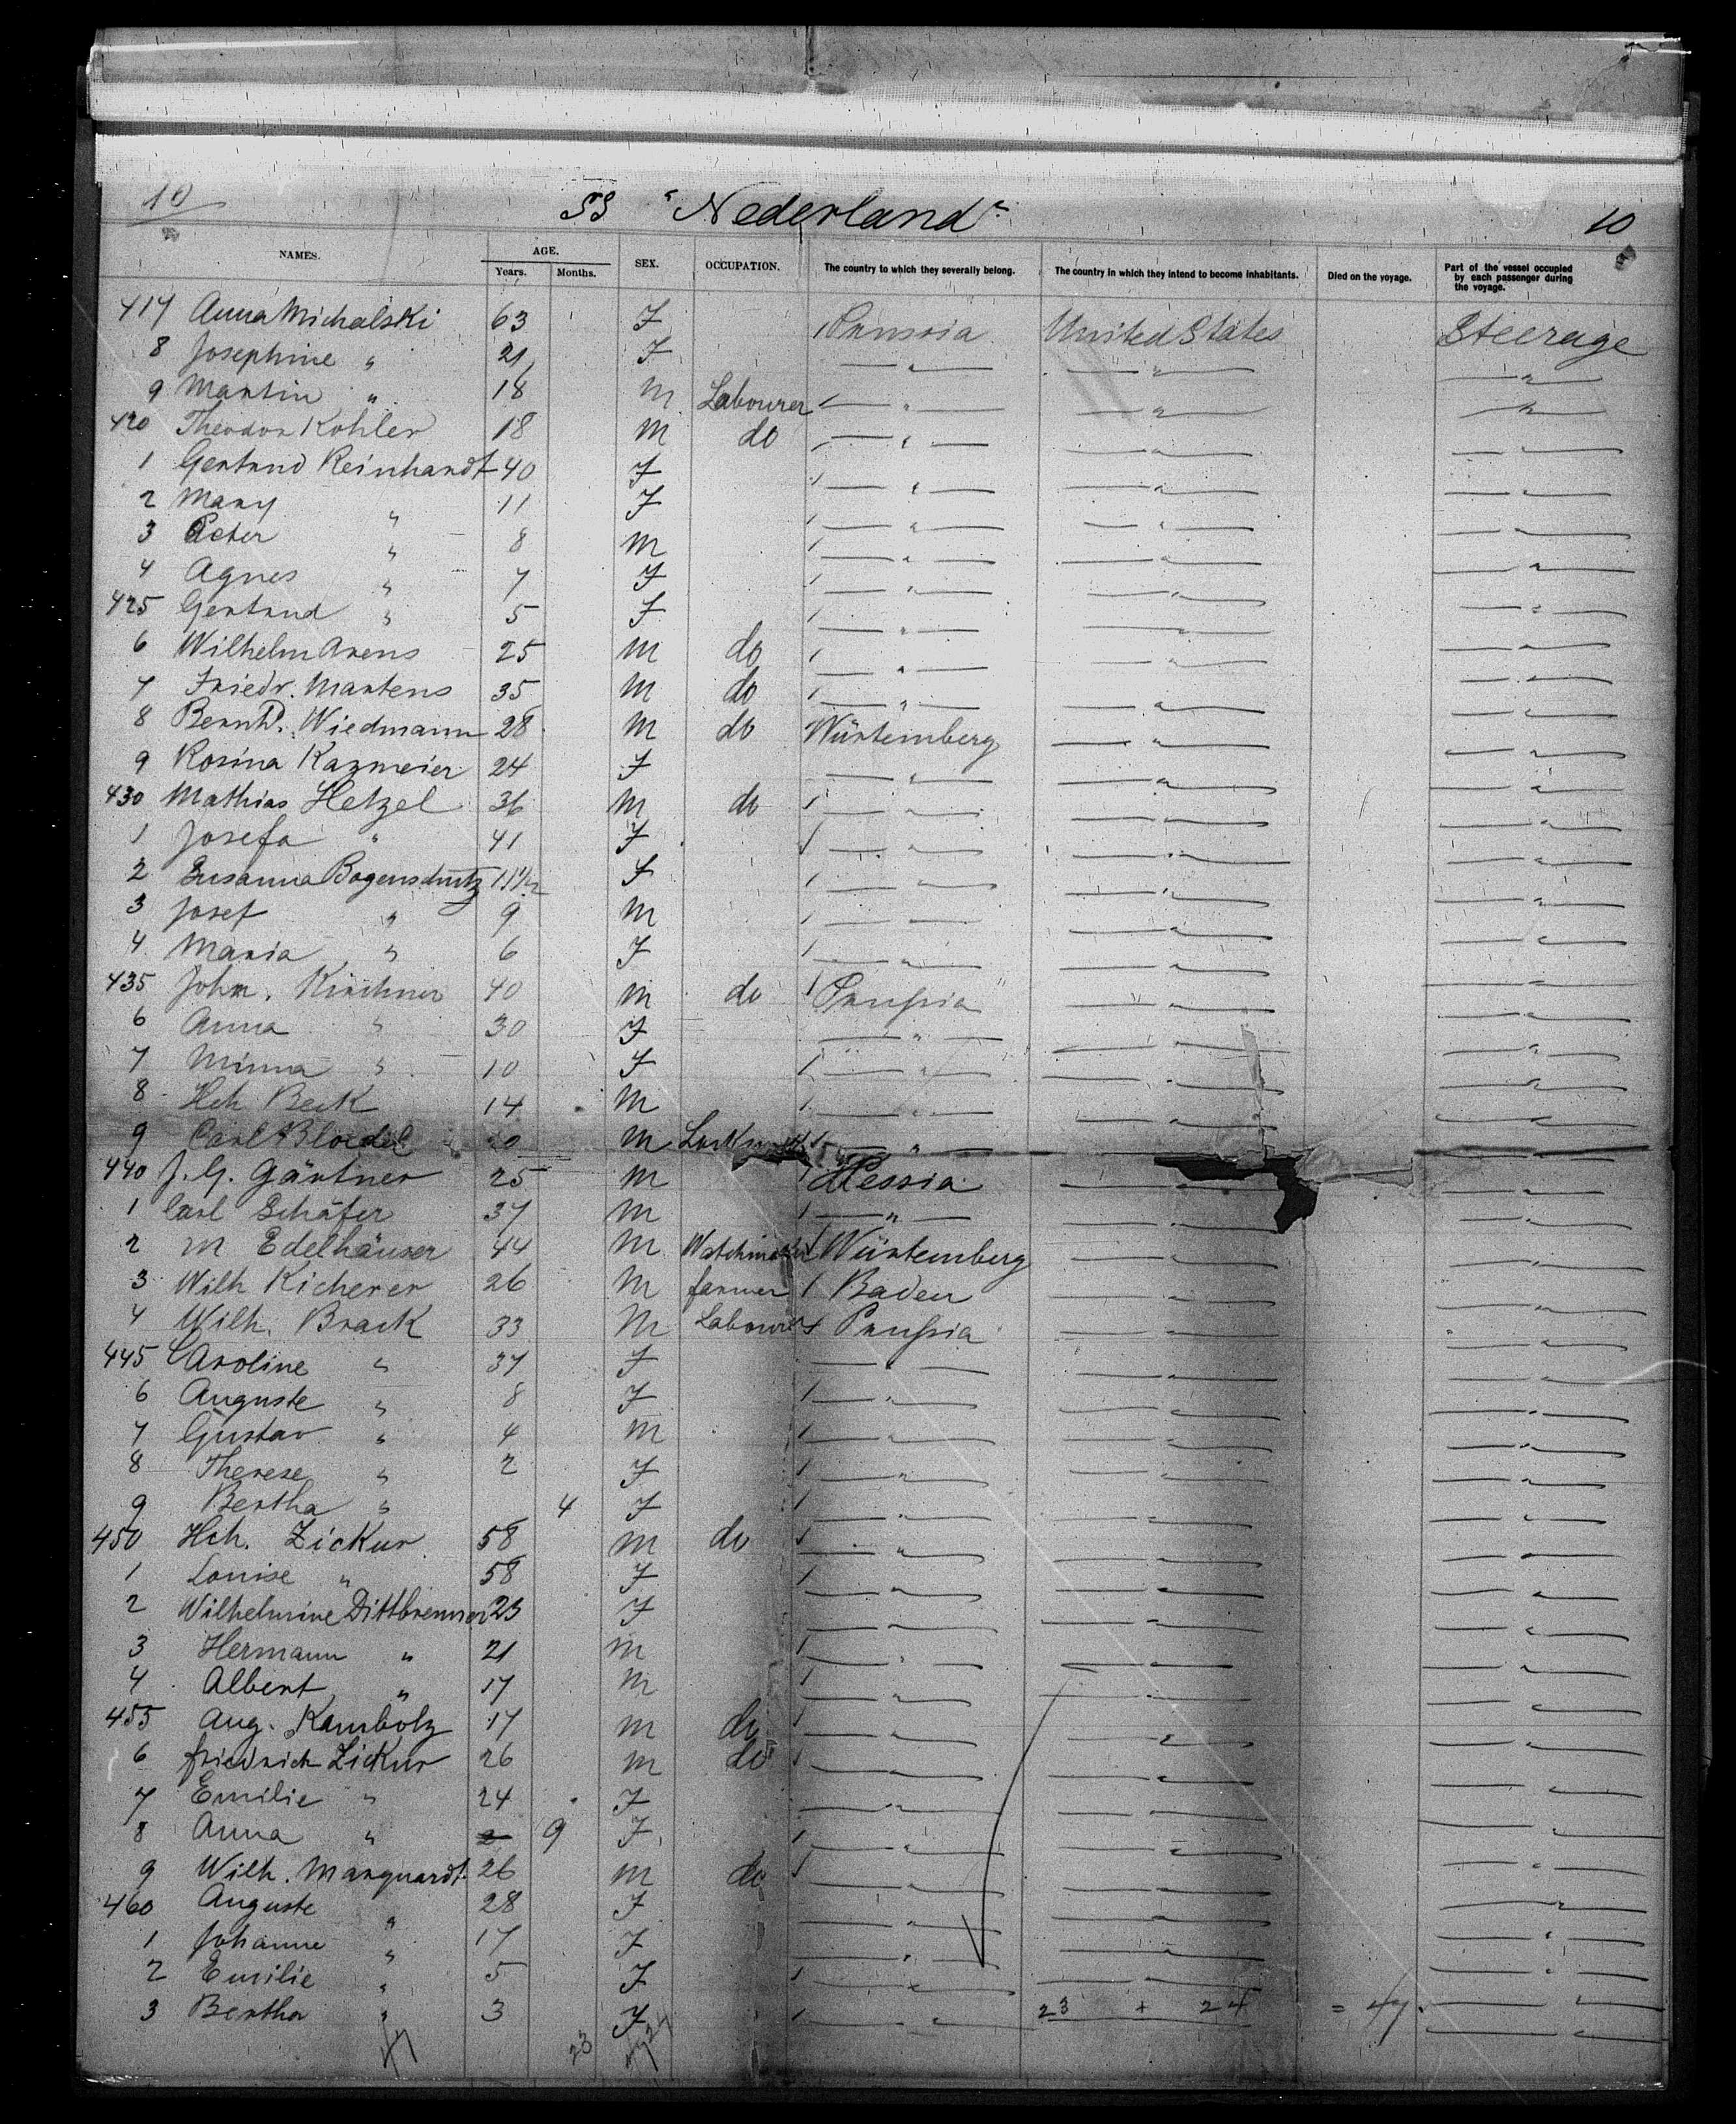 10 SS "Nederland" 10
NAMES. AGE. Years. Months. SEX. OCCUPATION. The country to which they severally belong. The country in which they intend to become inhabitants. Died on the voyage. Part of the vessel occupied by each passenger during the voyage.
417 Anna Michalski 63 F Prussia United States Steerage
8 Josephine " 21 F — " — — " — — " —
9 Martin " 18 M Labourer — " — — " — — " —
420 Theodor Kohler 18 M do — " — — " — — " —
1 Gertrud Reinhardt 40 F — " — — " — — " —
2 Mary " 11 F — " — — " — — " —
3 Peter " 8 M — " — — " — — " —
4 Agnes " 7 F — " — — " — — " —
425 Gertrud " 5 F — " — — " — — " —
6 Wilhelm Arens 25 M do — " — — " — — " —
7 Friedr. Martens 35 M do — " — — " — — " —
8 Bernhd. Wiedmann 28 M do Würtemberg — " — — " —
9 Rosina Kazmeier 24 F — " — — " — — " —
430 Mathias Hetzel 36 M do — " — — " — — " —
1 Josefa " 41 F — " — — " — — " —
2 Susanna 11 1/2 F — " — — " — — " —
3 Josef " 9 M — " — — " — — " —
4 Maria " 6 F — " — — " — — " —
435 John. Kirchner 40 M do Prussia — " — — " —
6 Anna " 30 F — " — — " — — " —
7 Minna " 10 F — " — — " — — " —
8 Hch Beck 14 M — " — — " — — " —
9 Carl Bloedel M — " — — " — — " —
440 J. G. Gärtner 25 M Hessia — " — — " —
1 Carl Schäfer 37 M — " — — " — — " —
2 M Edelhäuser 44 M Watchmaker Würtemberg — " — — " —
3 Wilh Kicherer 26 M farmer Baden — " — — " —
4 Wilh. Brack 33 M Labourer Prussia — " — — " —
445 Caroline " 37 F — " — — " — — " —
6 Auguste " 8 F — " — — " — — " —
7 Gustav " 4 M — " — — " — — " —
8 Therese " 2 F — " — — " — — " —
9 Bertha " 4 F — " — — " — — " —
450 Hch. Zickur 58 M do — " — — " — — " —
1 Louise " 58 F — " — — " — — " —
2 Wilhelmine Dittbrenner 23 F — " — — " — — " —
3 Hermann " 21 M — " — — " — — " —
4 Albert " 17 M — " — — " — — " —
455 Aug. Kambolz 17 M do — " — — " — — " —
6 Friedrich Zickur 26 M do — " — — " — — " —
7 Emilie " 24 F — " — — " — — " —
8 Anna " 2 9 F — " — — " — — " —
9 Wilh. Marquardt 26 M do — " — — " — — " —
460 Auguste " 28 F — " — — " — — " —
1 Johanne " 17 F — " — — " — — " —
2 Emilie " 5 F — " — — " — — " —
3 Bertha " 3 F — " — 23 + 24 = 47. — " —
47 23 24